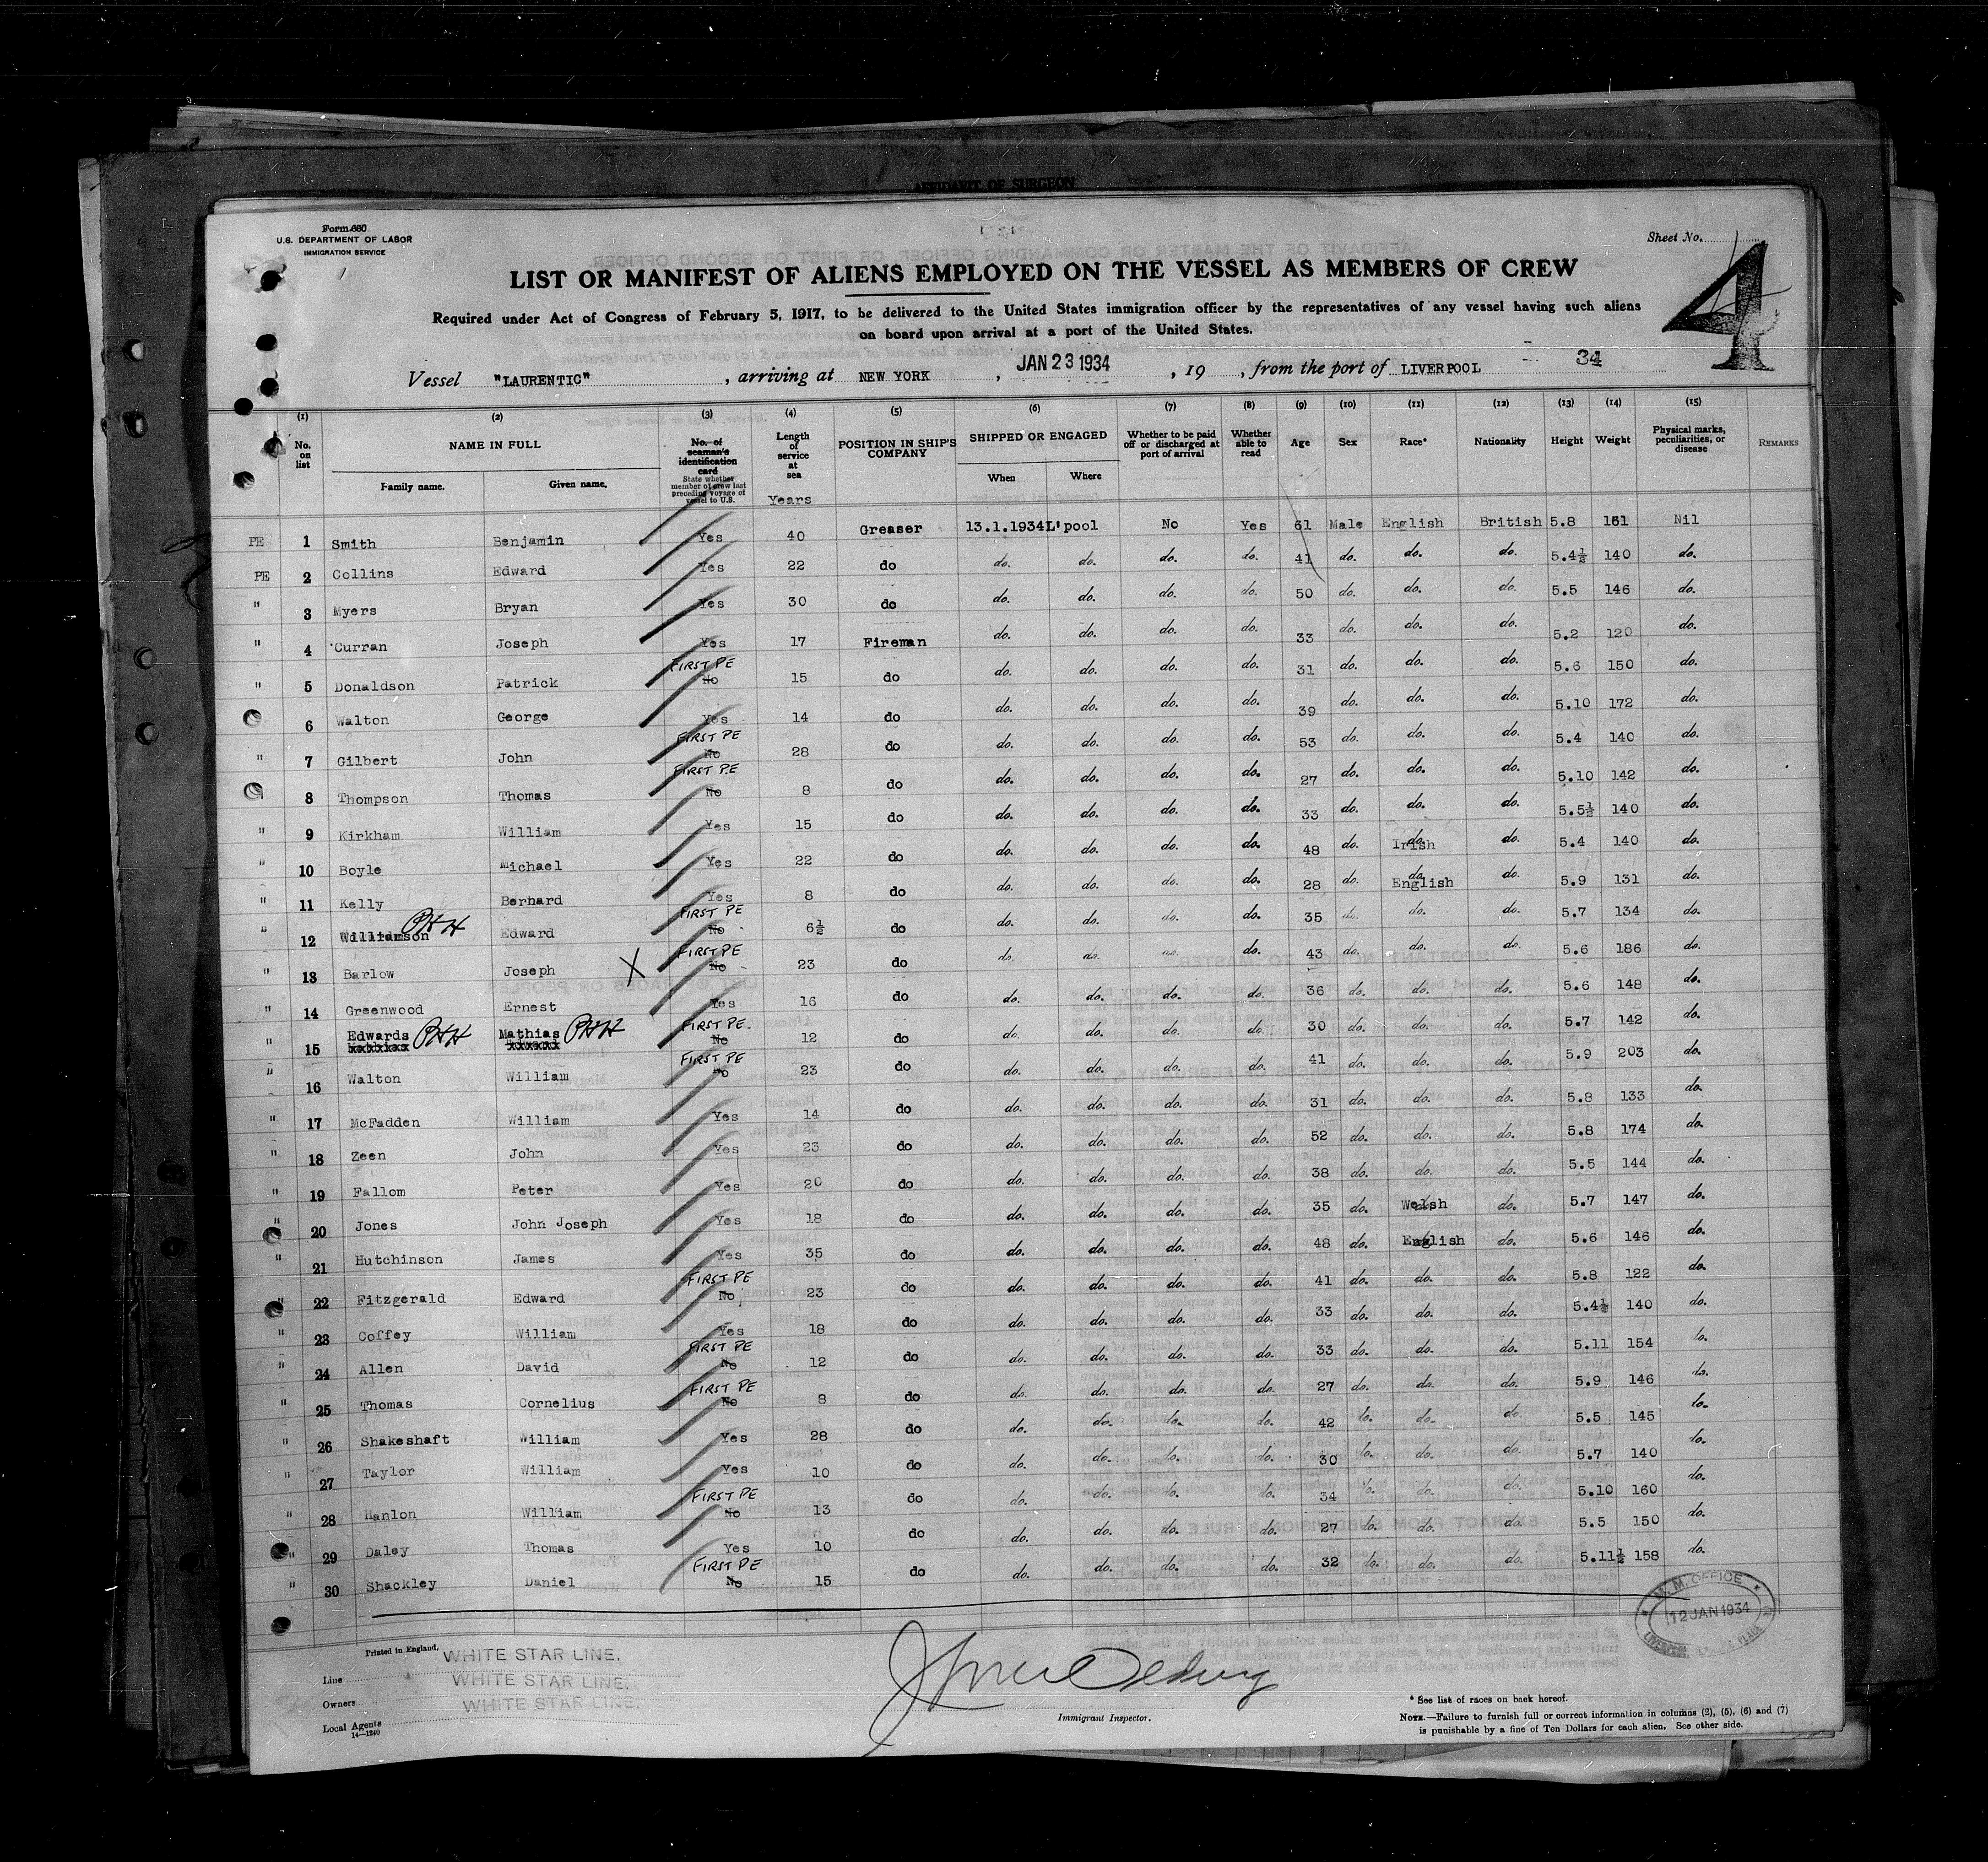 AFFIDAVIT OF SURGEON
Form 680
U.S. DEPARTMENT OF LABOR
IMMIGRATION SERVICE
Sheet No.
4
LIST OR MANIFEST OF ALIENS EMPLOYED ON THE VESSEL AS MEMBERS OF CREW
Required under Act of Congress of February 5, 1917, to be delivered to the United States immigration officer by the representatives of any vessel having such aliens
on board upon arrival at a port of the United States.
Vessel "LAURENTIC", arriving at NEW YORK, JAN 23 1934, 19 , from the port of LIVERPOOL 34
(1) (2) (3) (4) (5) (6) (7) (8) (9) (10) (11) (12) (13) (14) (15)
No. on list NAME IN FULL Family name. Given name. No. of seaman's identification card State whether member of crew last preceding voyage of vessel to U.S. Length of service at sea Years POSITION IN SHIP'S COMPANY SHIPPED OR ENGAGED When Where Whether to be paid off or discharged at port of arrival Whether able to read Age Sex Race* Nationality Height Weight Physical marks, peculiarities, or disease REMARKS
PE 1 Smith Benjamin Yes 40 Greaser 13.1.1934 L'pool No Yes 61 Male English British 5.8 161 Nil
PE 2 Collins Edward Yes 22 do do. do. do. do. 41 do. do. do. 5.4½ 140 do.
" 3 Myers Bryan Yes 30 do do. do. do. do. 50 do. do. do. 5.5 146 do.
" 4 Curran Joseph Yes 17 Fireman do. do. do. do. 33 do. do. do. 5.2 120 do.
" 5 Donaldson Patrick FIRST PE No 15 do do. do. do. do. 31 do. do. do. 5.6 150 do.
6 Walton George Yes 14 do do. do. do. do. 39 do. do. do. 5.10 172 do.
" 7 Gilbert John FIRST PE No 28 do do. do. do. do. 53 do. do. do. 5.4 140 do.
8 Thompson Thomas FIRST P.E No 8 do do. do. do. do. 27 do. do. do. 5.10 142 do.
" 9 Kirkham William Yes 15 do do. do. do. do. 33 do. do. do. 5.5½ 140 do.
" 10 Boyle Michael Yes 22 do do. do. do. do. 48 do. do. Irish do. 5.4 140 do.
" 11 Kelly Bernard Yes 8 do do. do. do. do. 28 do. do. English do. 5.9 131 do.
" 12 Williamson PHH Edward FIRST PE No 6½ do do. do. do. do. 35 do. do. do. 5.7 134 do.
" 13 Barlow Joseph X FIRST PE No 23 do do. do. do. do. 43 do. do. do. 5.6 186 do.
" 14 Greenwood Ernest Yes 16 do do. do. do. do. 36 do. do. do. 5.6 148 do.
" 15 Edwards PHH Mathias PHH FIRST PE. No 12 do do. do. do. do. 30 do. do. do. 5.7 142 do.
" 16 Walton William FIRST PE No 23 do do. do. do. do. 41 do. do. do. 5.9 203 do.
" 17 McFadden William Yes 14 do do. do. do. do. 31 do. do. do. 5.8 133 do.
" 18 Zeen John Yes 23 do do. do. do. do. 52 do. do. do. 5.8 174 do.
" 19 Fallom Peter Yes 20 do do. do. do. do. 38 do. do. do. 5.5 144 do.
" 20 Jones John Joseph Yes 18 do do. do. do. do. 35 do. Welsh do. 5.7 147 do.
" 21 Hutchinson James Yes 35 do do. do. do. do. 48 do. English do. 5.6 146 do.
" 22 Fitzgerald Edward FIRST PE No 23 do do. do. do. do. 41 do. do. do. 5.8 122 do.
" 23 Coffey William Yes 18 do do. do. do. do. 33 do. do. do. 5.4½ 140 do.
" 24 Allen David FIRST PE No 12 do do. do. do. do. 33 do. do. do. 5.11 154 do.
" 25 Thomas Cornelius FIRST PE No 8 do do. do. do. do. 27 do. do. do. 5.9 146 do.
" 26 Shakeshaft William Yes 28 do do. do. do. do. 42 do. do. do. 5.5 145 do.
" 27 Taylor William Yes 10 do do. do. do. do. 30 do. do. do. 5.7 140 do.
" 28 Hanlon William FIRST PE No 13 do do. do. do. do. 34 do. do. do. 5.10 160 do.
" 29 Daley Thomas Yes 10 do do. do. do. do. 27 do. do. do. 5.5 150 do.
" 30 Shackley Daniel FIRST PE No 15 do do. do. do. do. 32 do. do. do. 5.11½ 158 do.
M. OFFICE
12 JAN 1934
Printed in England.
Line WHITE STAR LINE.
Owners WHITE STAR LINE.
Local Agents WHITE STAR LINE.
14—1240
Immigrant Inspector.
* See list of races on back hereof.
NOTE.—Failure to furnish full or correct information in columns (2), (5), (6) and (7)
is punishable by a fine of Ten Dollars for each alien. See other side.